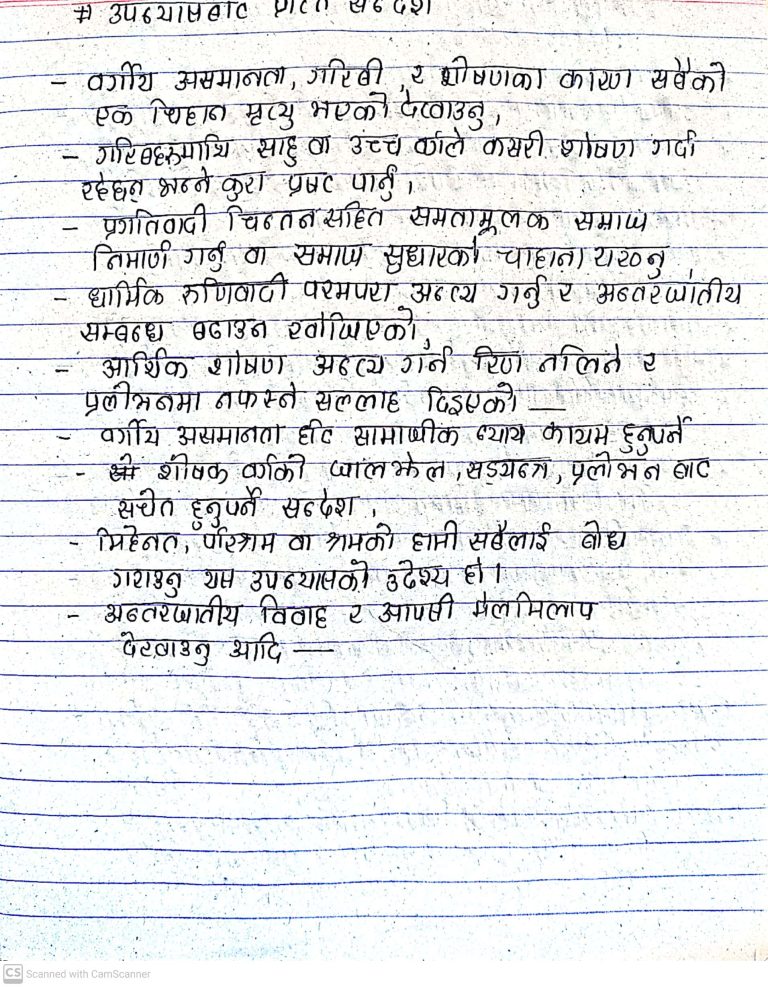 # उपन्यासबाट प्राप्त सन्देश
- वर्गीय असमानता, गरिबी, र शोषणका कारण सबैको
एक चिहान मृत्यु भएको देखाउनु,
- गरिबहरुमाथि साहु वा उच्च वर्गले कसरी शोषण गर्दा
रहेछन् भन्ने कुरा प्रष्ट पार्नु,
- प्रगतिवादी चिन्तन सहित समतामूलक समाज
निर्माण गर्नु वा समाज सुधारको चाहाना राख्नु
- धार्मिक रुणिवादी परमपरा अन्त्य गर्नु र अन्तरजातीय
सम्बन्ध बढाउन खोजिएको,
- आर्थिक शोषण अन्त्य गर्न रिण नलिने र
प्रलोभनमा नफस्ने सल्लाह दिइएको —
- वर्गीय असमानता हटि सामाजीक न्याय कायम हुनुपर्ने
- शोषक वर्गको जालझेल, सड्यन्त्र, प्रलोभन बाट
सचेत हुनुपर्ने सन्देश,
- मिहेनत, परिश्रम वा श्रमको हामी सबैलाई बोध
गराउनु यस उपन्यासको उदेश्य हो।
- अन्तरजातीय विवाह र आपसी मेलमिलाप
देखाउनु आदि —
CS Scanned with CamScanner